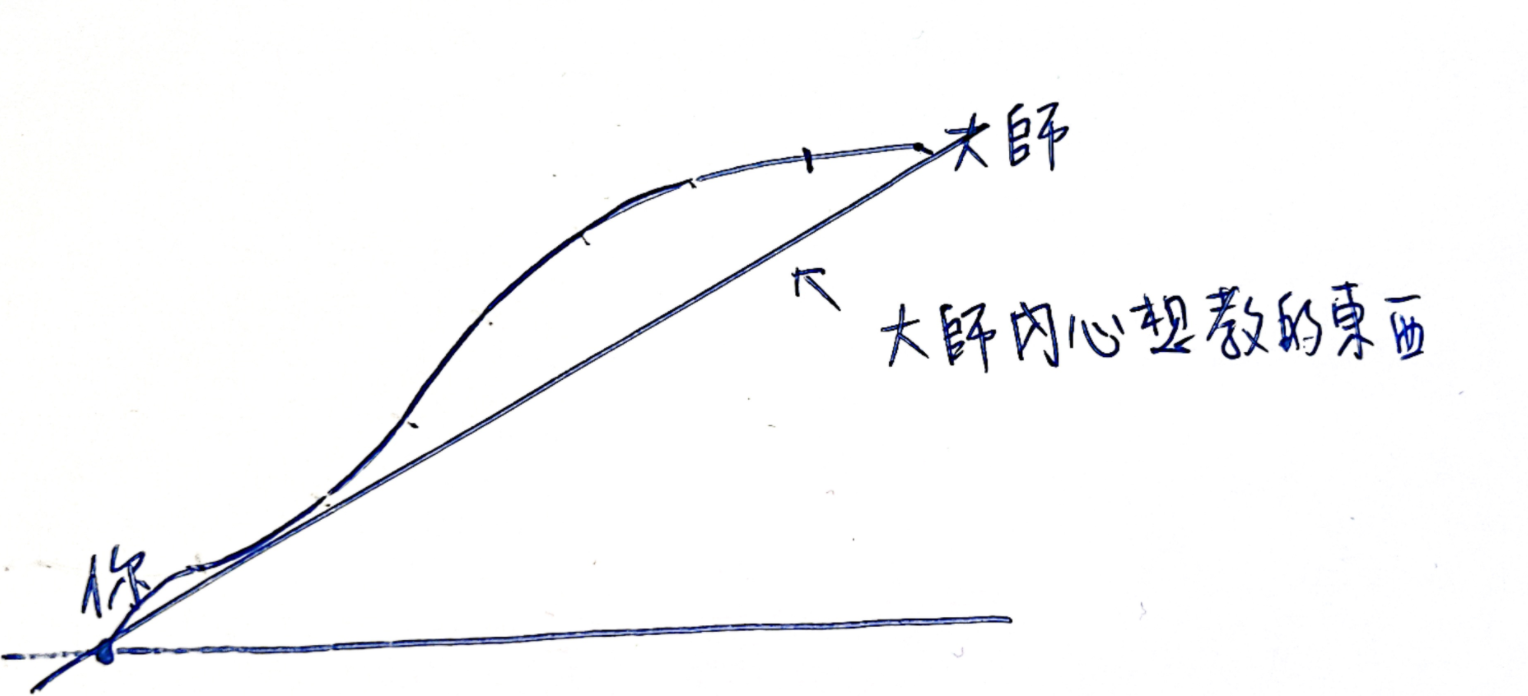 大師
大師內心想教的東西
你